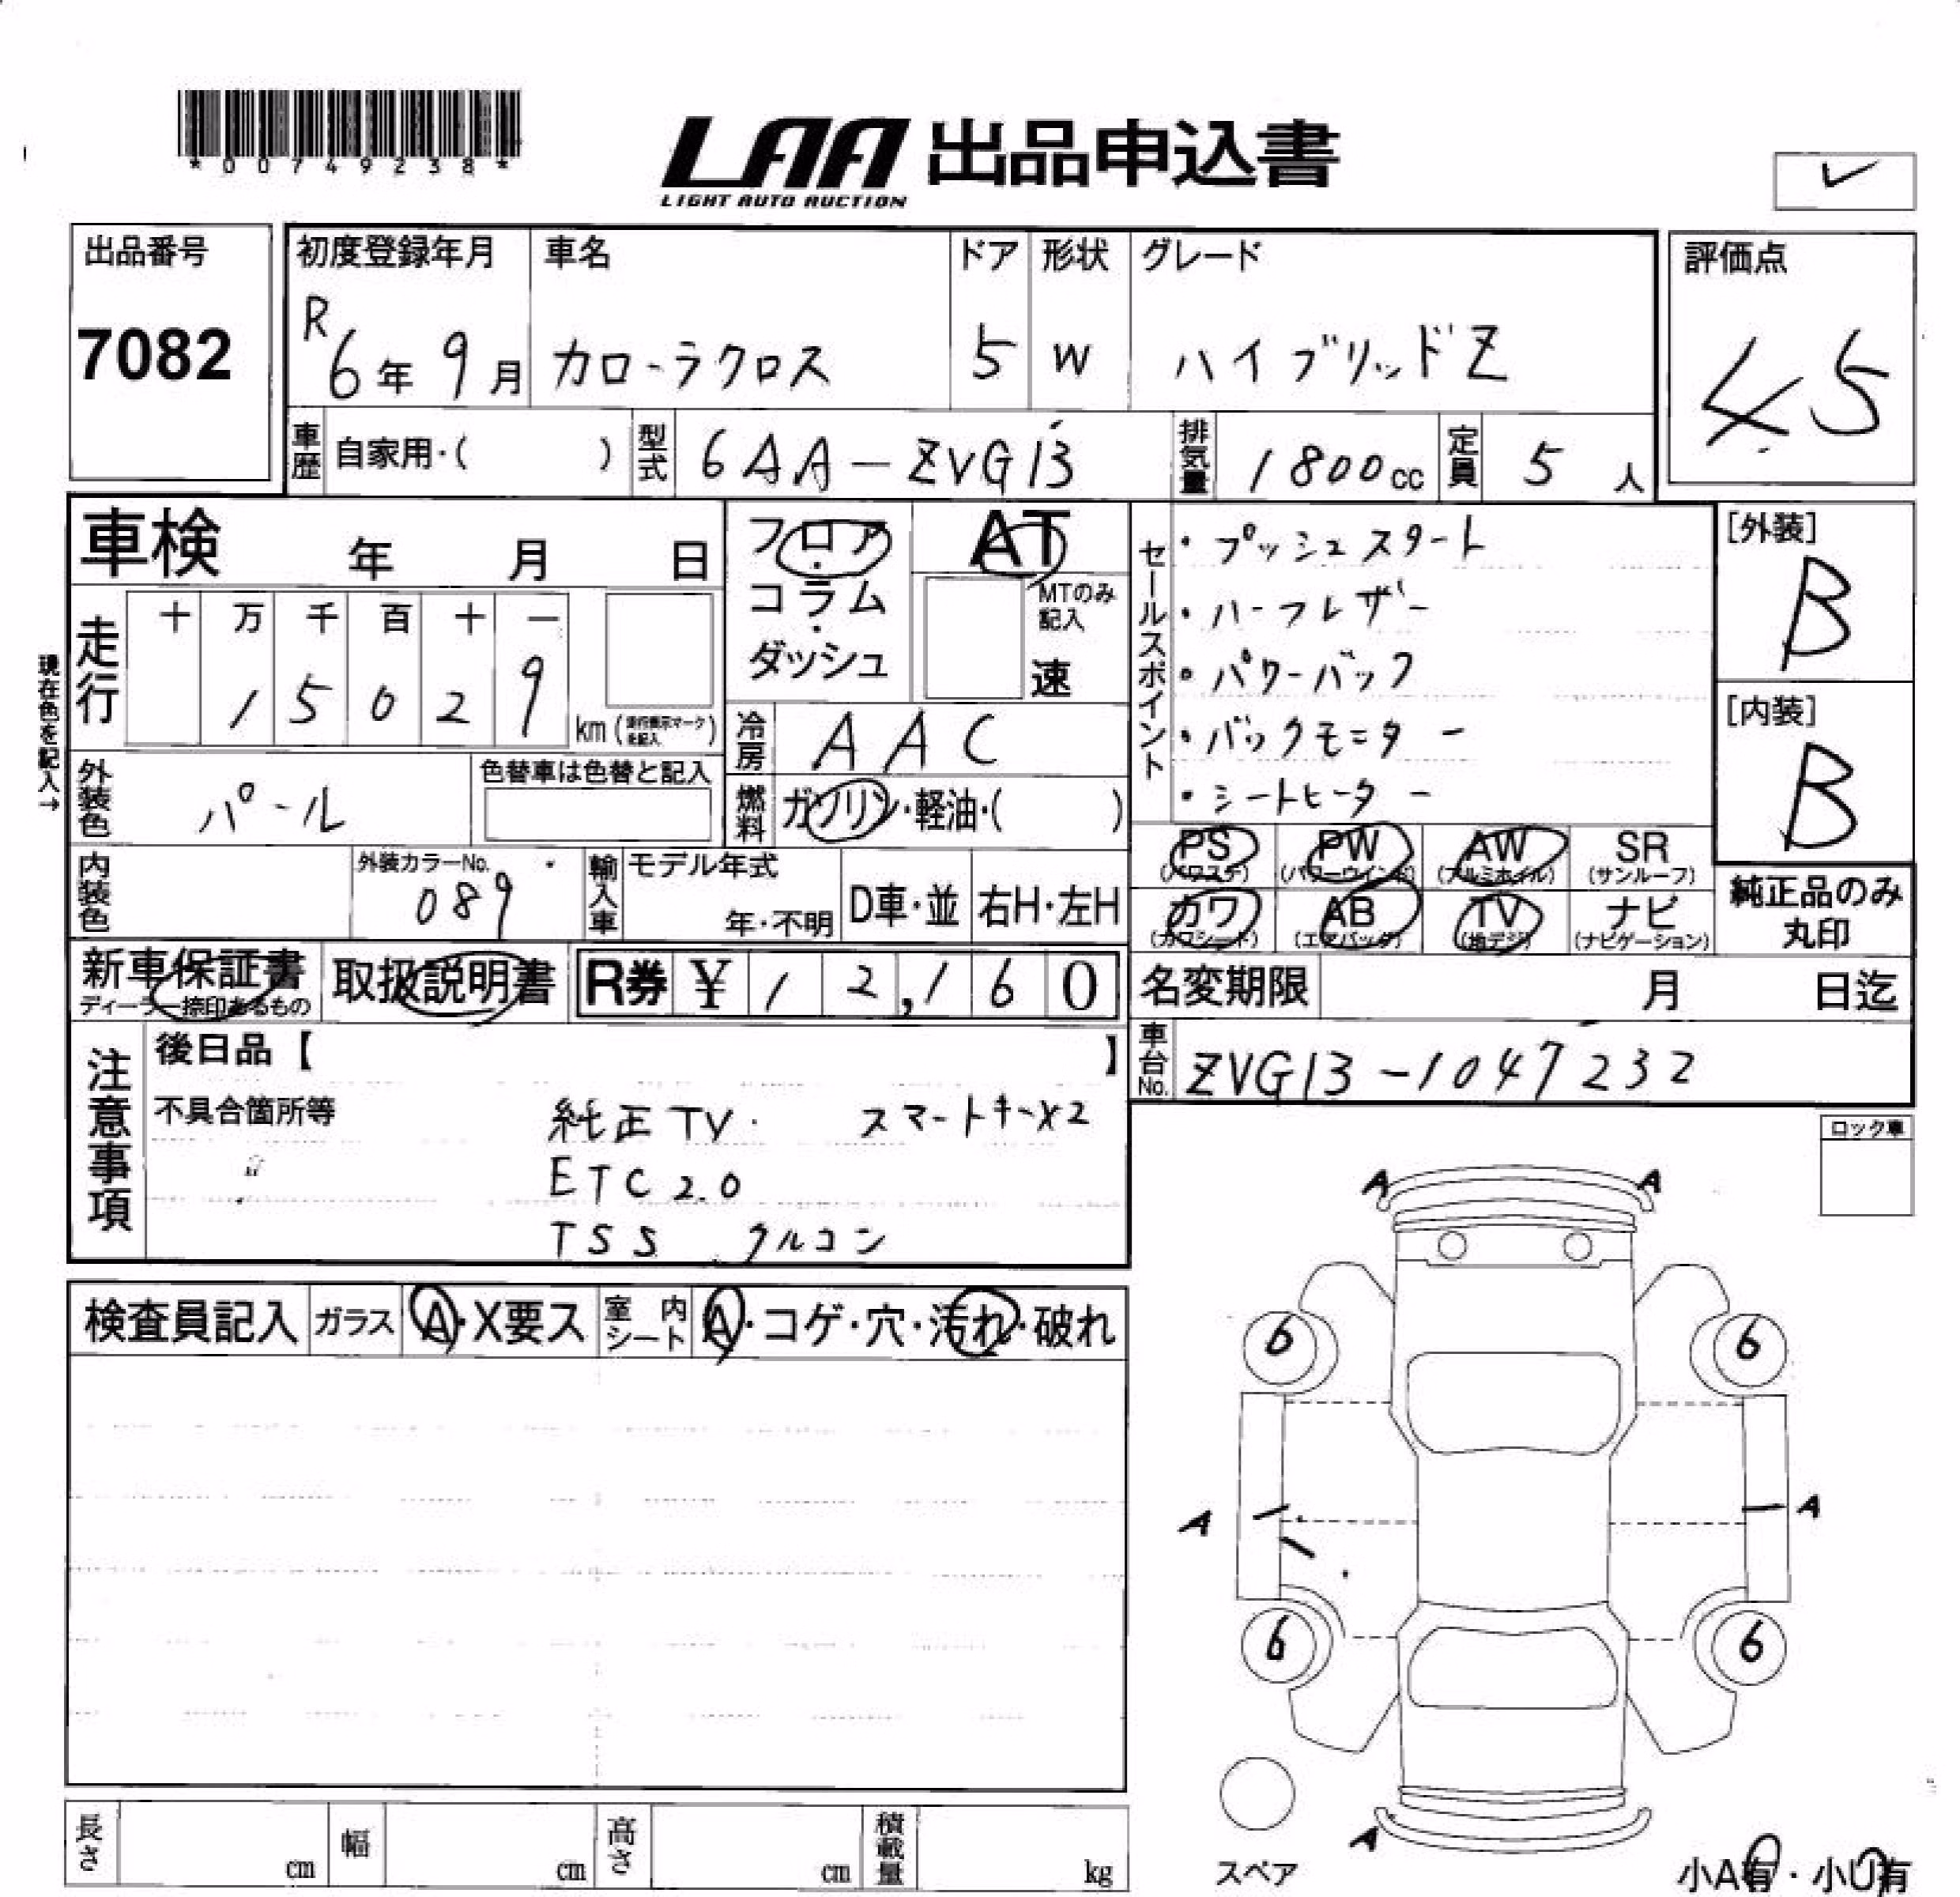 *00749238*
LAA 出品申込書
LIGHT AUTO AUCTION
出品番号
7082
初度登録年月
R6年9月
車名
カローラクロス
ドア
5
形状
W
グレード
ハイブリッドZ
評価点
4.5
車歴 自家用・( )
型式 6AA-ZVG13
排気量 1800cc
定員 5人
車検 年 月 日
フロア・コラム・ダッシュ
AT
MTのみ記入
速
セールスポイント
・プッシュスタート
・ハーフレザー
・パワーバック
・バックモニター
・シートヒーター
[外装]
B
[内装]
B
現在色を記入→
走行
十 万 千 百 十 一
1 5 0 2 9 km
冷房 AAC
外装色 パール
色替車は色替と記入
燃料 ガソリン・軽油・( )
内装色
外装カラーNo.
089
輸入車
モデル年式
年・不明
D車・並
右H・左H
PS (パワステ)
PW (パワーウインド)
AW (アルミホイル)
SR (サンルーフ)
カワ (カワシート)
AB (エアバッグ)
TV (地デジ)
ナビ (ナビゲーション)
純正品のみ丸印
新車保証書
ディーラー捺印あるもの
取扱説明書
R券 ¥12,160
名変期限 月 日迄
車台No. ZVG13-1047232
注意事項
後日品【 】
不具合箇所等
純正TV. スマートキーx2
ETC2.0
TSS クルコン
ロック車
検査員記入
ガラス A・X要ス
室内シート A・コゲ・穴・汚れ・破れ
A A
6 6
A A
6 6
A
スペア
小A有・小U有
長さ cm
幅 cm
高さ cm
積載量 kg